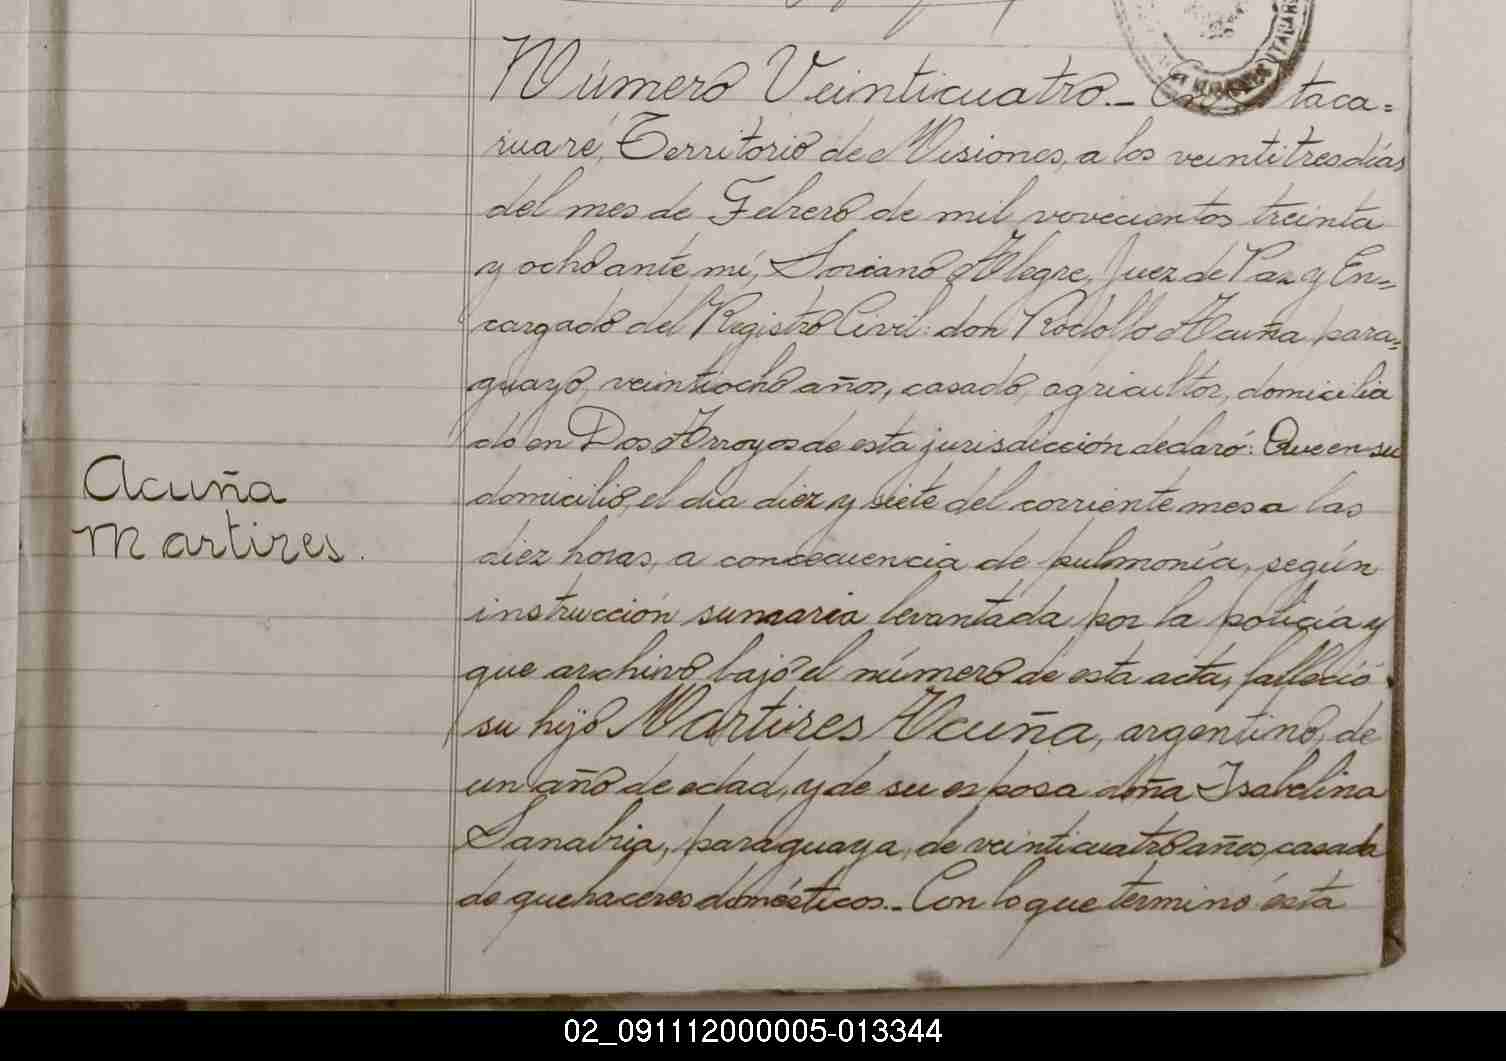 Número Veinticuatro.- En taca=
ruaré, Territorio de Misiones, a los veintitres días
del mes de Febrero de mil novecientos treinta
y ocho ante mí, Soriano Alegre, Juez de Paz y En=
cargado del Registro Civil: don Rodolfo Acuña, para=
guayo, veintiocho años, casado, agricultor, domicilia
do en Dos Arroyos de esta jurisdicción declaró: Que en su
Acuña
Martires.
domicilio, el dia diez y siete del corriente mes a las
diez horas, a concecuencia de pulmonía, según
instrucción sumaria levantada por la policía y
que archivo bajo el número de esta acta, falleció
su hijo Martires Acuña, argentino, de
un año de edad, y de su esposa doña Isabelina
Sanabria, paraguaya, de veinticuatro años, casada
de quehaceres domésticos.- Con lo que terminó ésta
02_091112000005-013344